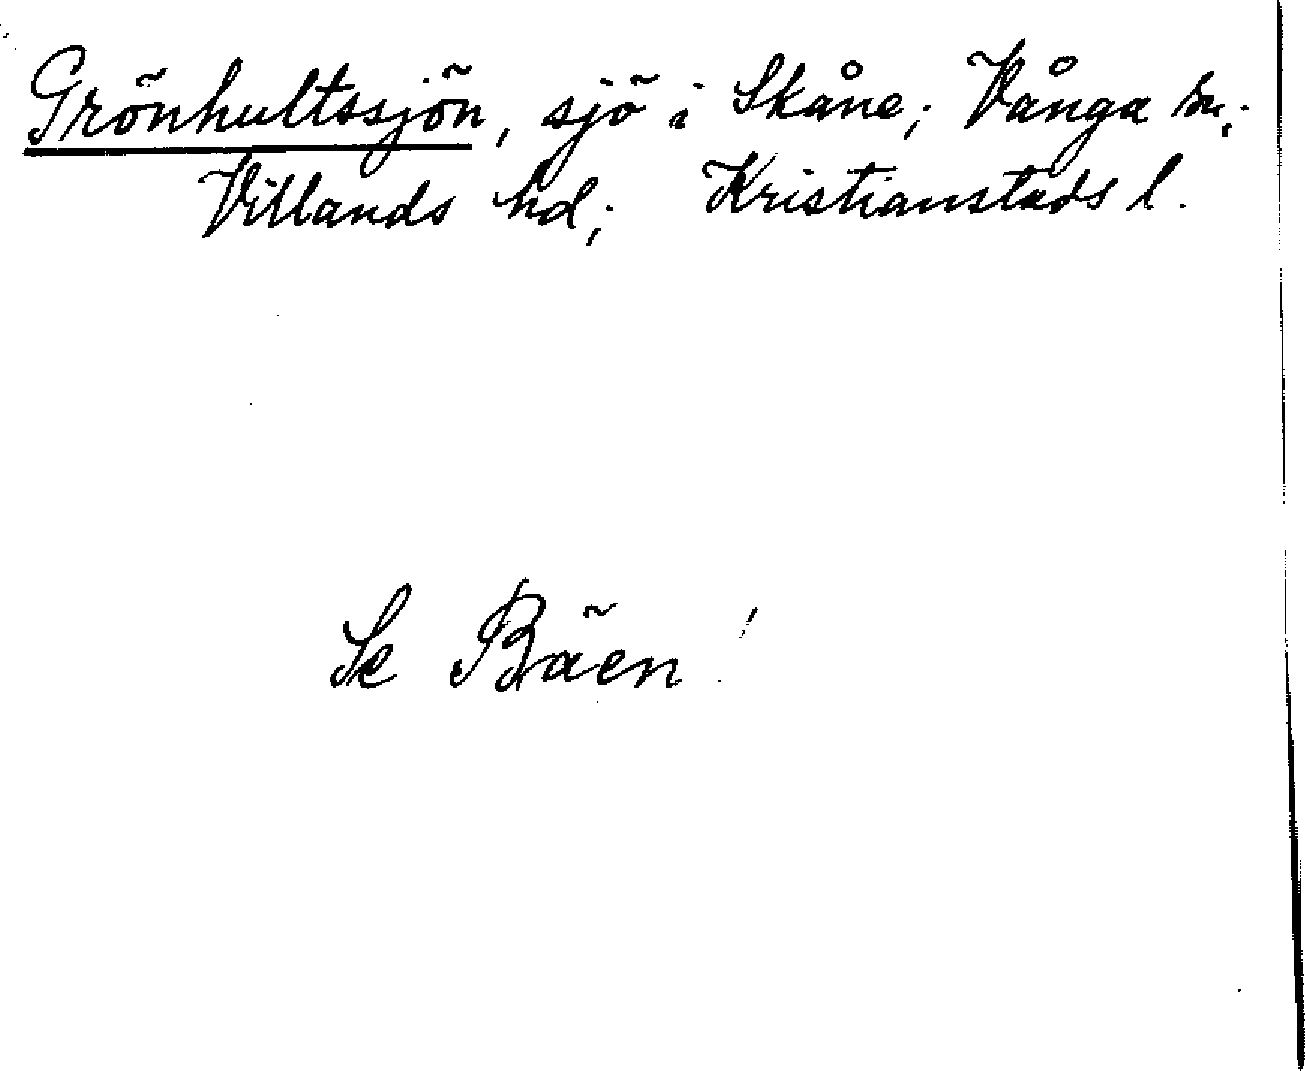 Grönhultssjön, sjö i Skåne; Vånga sn;
Villands hd; Kristianstads l.
Se Bäen!